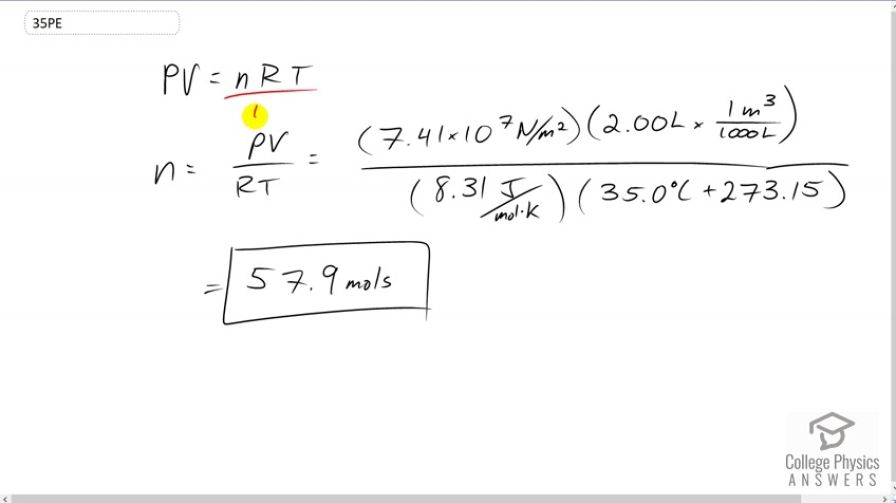 35PE
PV = nRT
n = PV/RT = (7.41×10⁷ N/m²)(2.00L × 1m³/1000L) / (8.31 J/mol·K)(35.0°C + 273.15)
= 57.9 mols
College Physics
ANSWERS